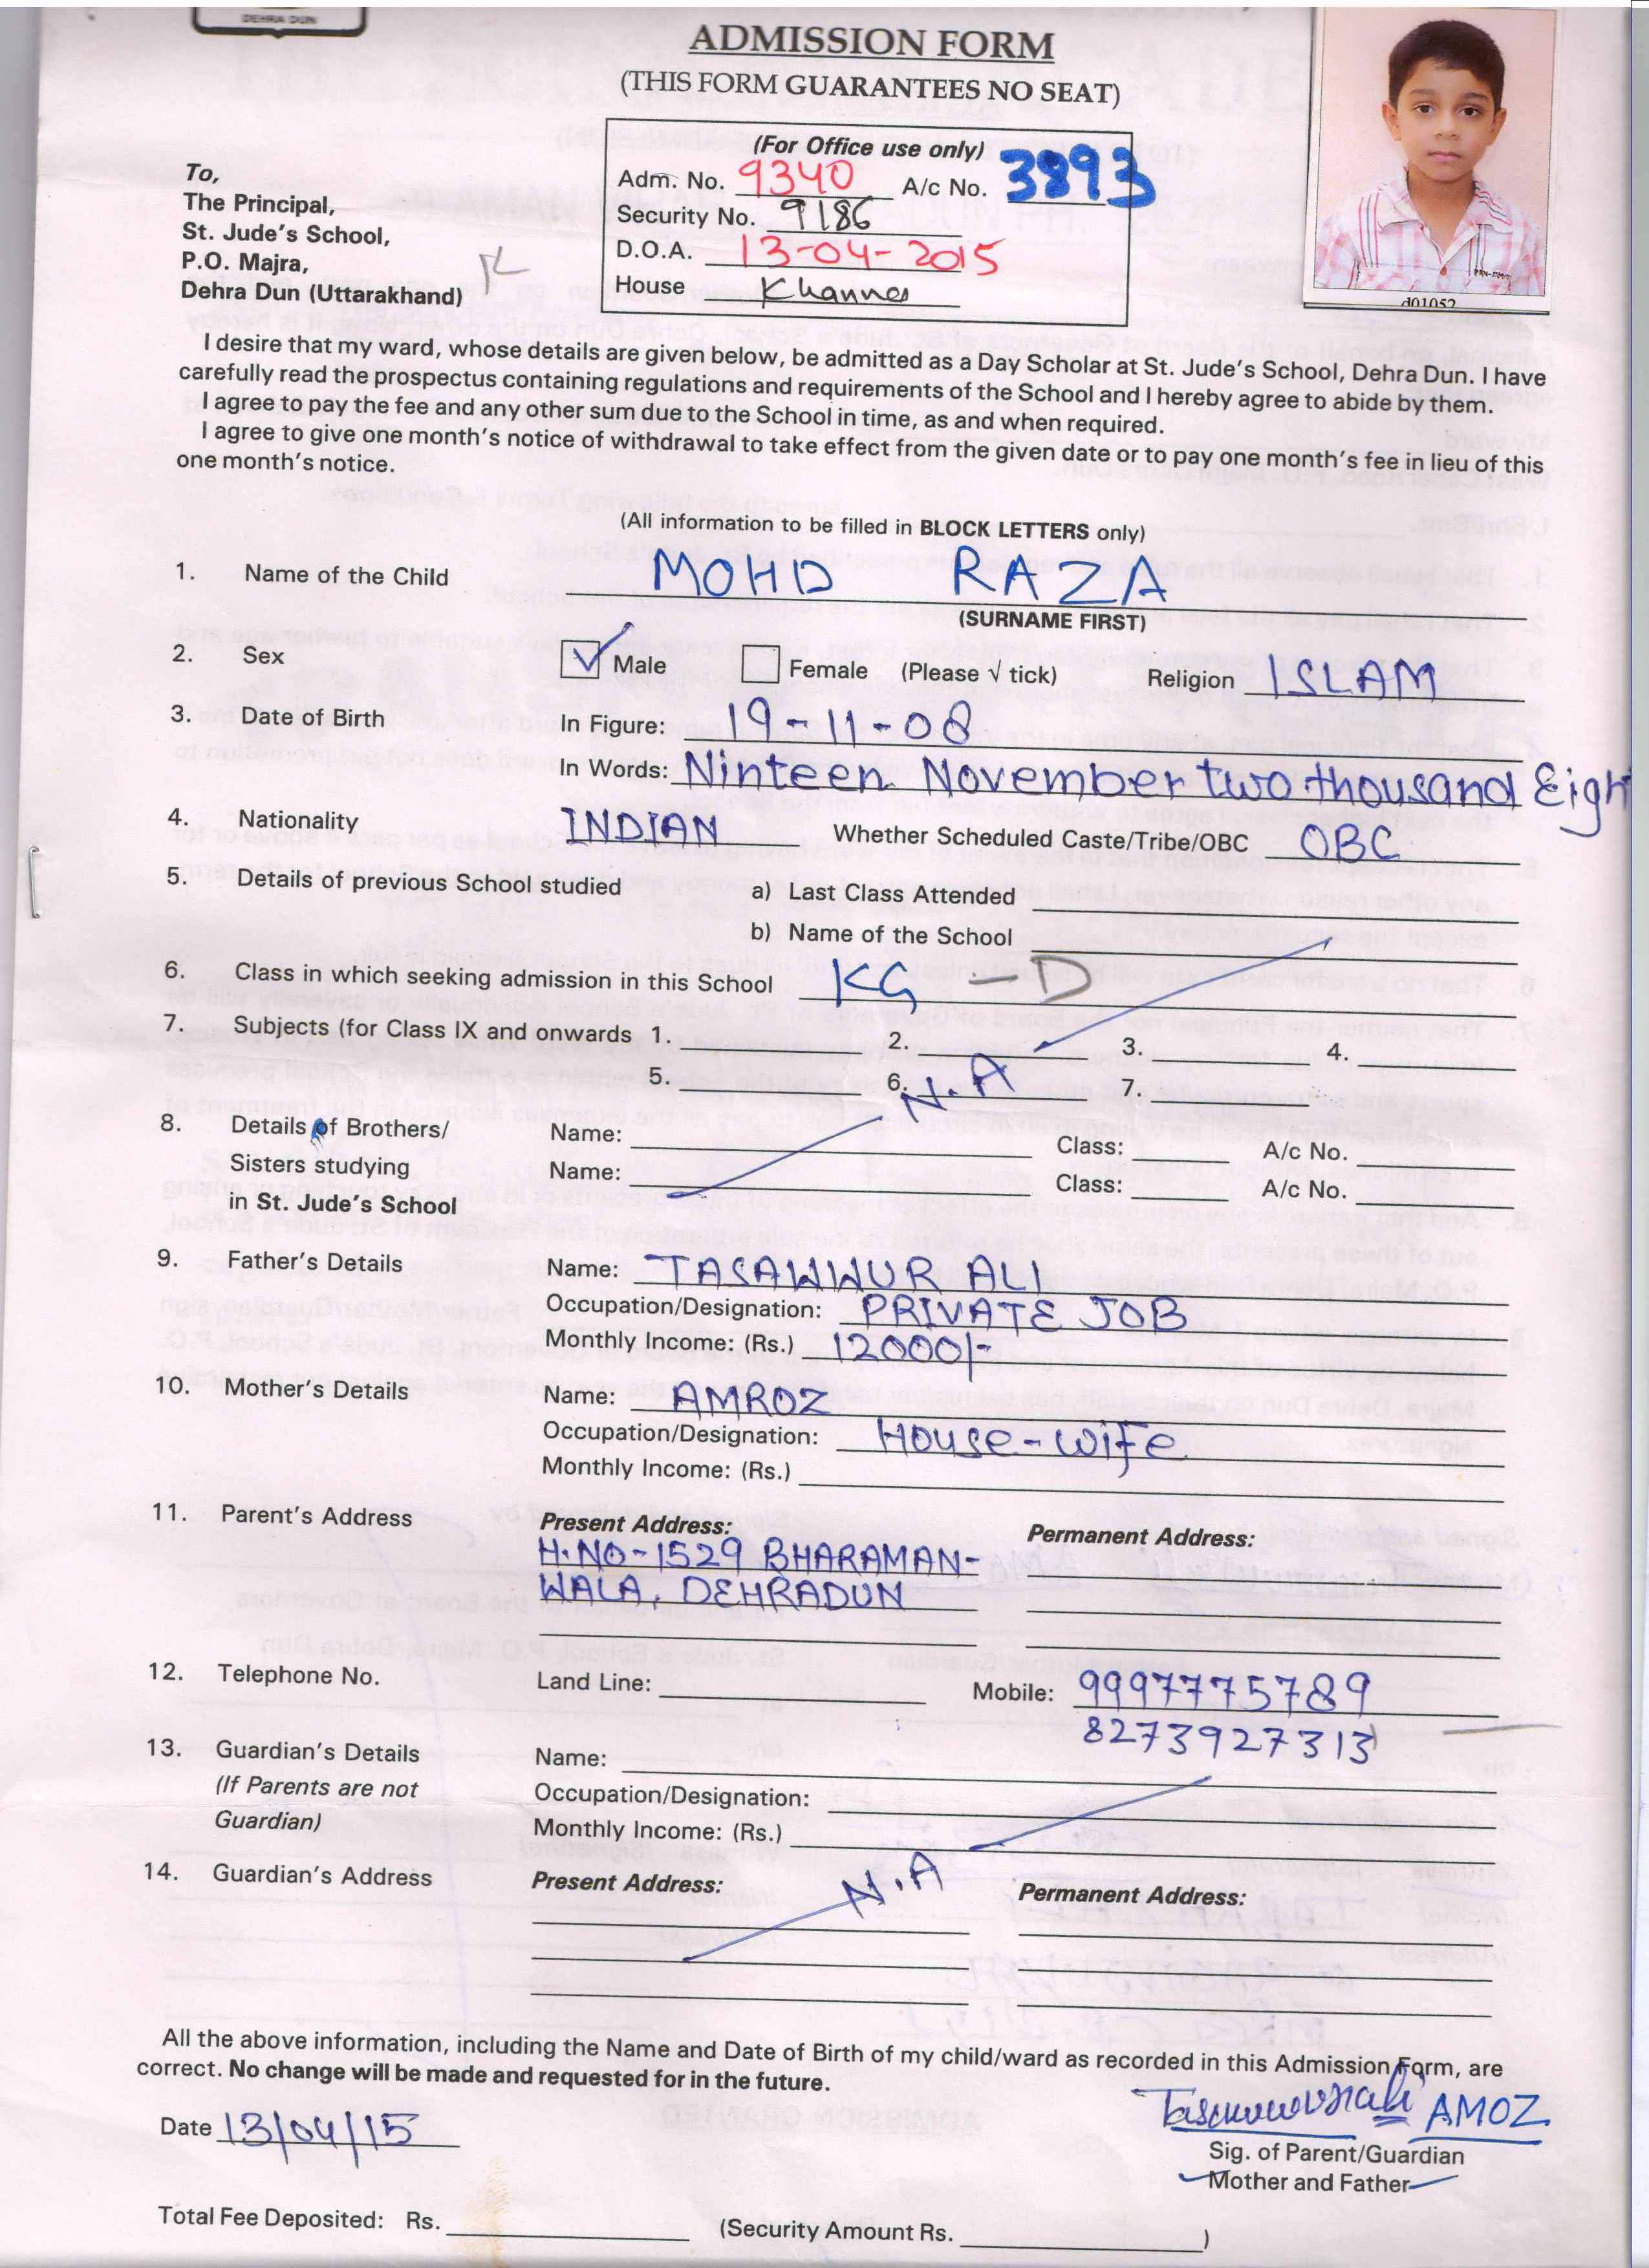 DEHRA DUN
ADMISSION FORM
(THIS FORM GUARANTEES NO SEAT)
(For Office use only)
Adm. No. 9340 A/c No. 3893
Security No. 9186
D.O.A. 13-04-2015
House Khanna
To,
The Principal,
St. Jude's School,
P.O. Majra,
Dehra Dun (Uttarakhand)
d01052
I desire that my ward, whose details are given below, be admitted as a Day Scholar at St. Jude's School, Dehra Dun. I have
carefully read the prospectus containing regulations and requirements of the School and I hereby agree to abide by them.
I agree to pay the fee and any other sum due to the School in time, as and when required.
I agree to give one month's notice of withdrawal to take effect from the given date or to pay one month's fee in lieu of this
one month's notice.
(All information to be filled in BLOCK LETTERS only)
1. Name of the Child MOHD RAZA
(SURNAME FIRST)
2. Sex Male Female (Please √ tick) Religion ISLAM
3. Date of Birth In Figure: 19-11-08
In Words: Ninteen November two thousand Eigh
4. Nationality INDIAN Whether Scheduled Caste/Tribe/OBC OBC
5. Details of previous School studied a) Last Class Attended
b) Name of the School
6. Class in which seeking admission in this School KG - D
7. Subjects (for Class IX and onwards 1. 2. 3. 4.
5. 6. N.A 7.
8. Details of Brothers/ Name: Class: A/c No.
Sisters studying Name: Class: A/c No.
in St. Jude's School
9. Father's Details Name: TASAWWUR ALI
Occupation/Designation: PRIVATE JOB
Monthly Income: (Rs.) 12000/-
10. Mother's Details Name: AMROZ
Occupation/Designation: House-wife
Monthly Income: (Rs.)
11. Parent's Address Present Address: Permanent Address:
H.NO-1529 BHARAMAN-
WALA, DEHRADUN
12. Telephone No. Land Line: Mobile: 9997775789
8273927313
13. Guardian's Details Name:
(If Parents are not Occupation/Designation:
Guardian) Monthly Income: (Rs.)
14. Guardian's Address Present Address: N.A Permanent Address:
All the above information, including the Name and Date of Birth of my child/ward as recorded in this Admission Form, are
correct. No change will be made and requested for in the future.
AMOZ
Date 13/04/15
Sig. of Parent/Guardian
Mother and Father
Total Fee Deposited: Rs. (Security Amount Rs. )